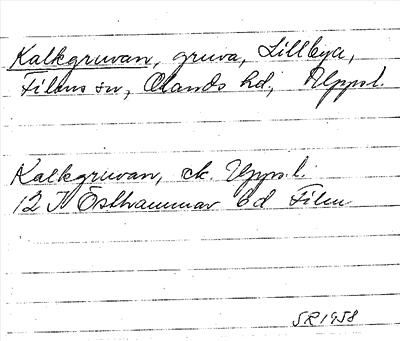 Kalkgruvan, gruva, Lillbya,
Films sn, Olands hd, Uppsl.
Kalkgruvan, ek. Upps.l.
12 I Östhammar 6d Film
SR 1958